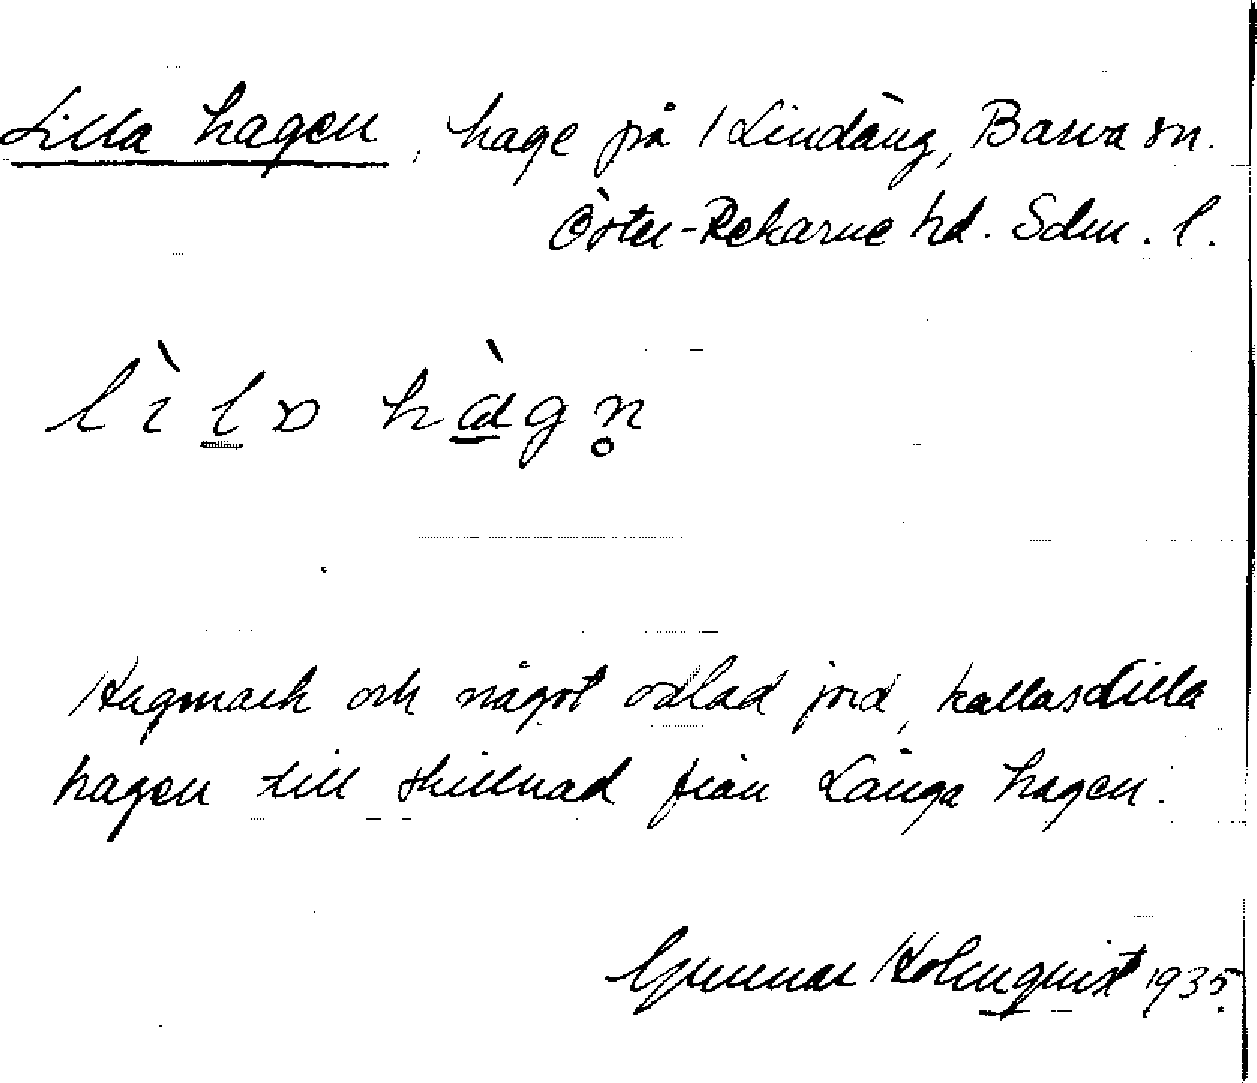 Lilla hagen, hage på Lindäng, Barva sn.
Öster-Rekarne hd. Sdm. l.
lìlɒ hàgn̥
Hagmark och något odlad jord, kallas Lilla
hagen till skillnad från Långa hagen.
Gunnar Holmquist 1935.